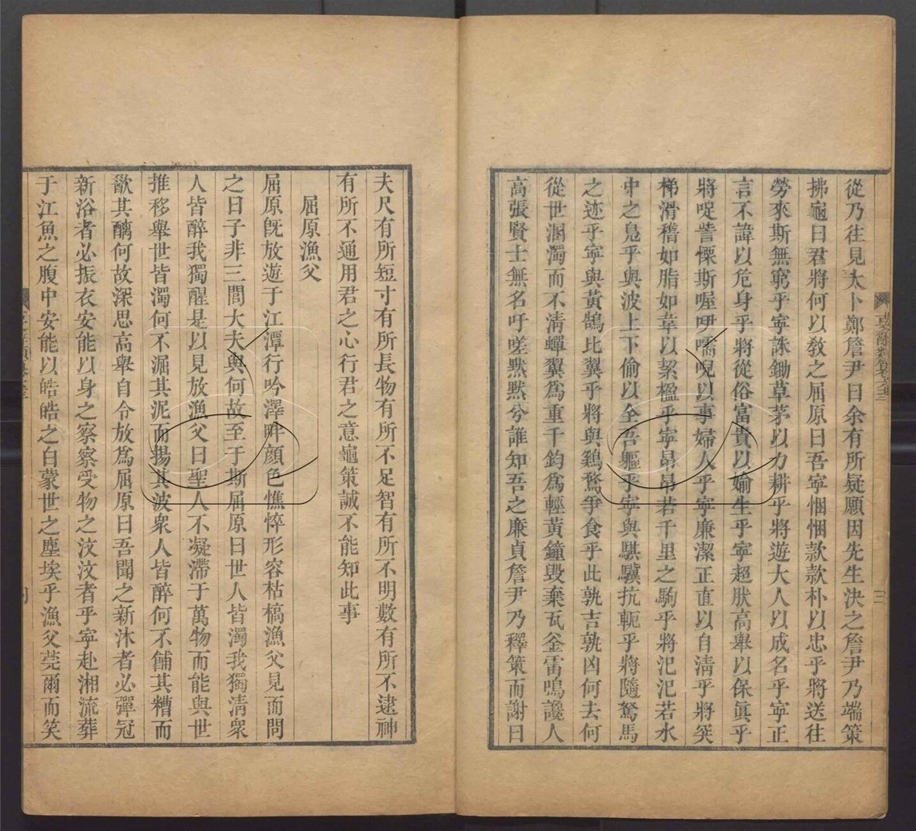 從乃往見太卜鄭詹尹曰余有所疑願因先生決之詹尹乃端策
拂龜曰君將何以教之屈原曰吾寧悃悃款款朴以忠乎將送往
勞來斯無窮乎寧誅鋤草茅以力耕乎將遊大人以成名乎寧正
言不諱以危身乎將從俗富貴以媮生乎寧超肰高舉以保眞乎
將哫訾慄斯喔咿嚅唲以事婦人乎寧廉潔正直以自清乎將突
梯滑稽如脂如韋以絜楹乎寧昂昂若千里之駒乎將氾氾若水
中之鳧乎與波上下偷以全吾軀乎寧與騏驥抗軛乎將隨駑馬
之迹乎寧與黃鵠比翼乎將與鷄鶩爭食乎此孰吉孰凶何去何
從世溷濁而不清蟬翼爲重千鈞爲輕黃鐘毀棄瓦釜雷鳴讒人
高張賢士無名吁嗟黙黙兮誰知吾之廉貞詹尹乃釋策而謝曰
夫尺有所短寸有所長物有所不足智有所不明數有所不逮神
有所不通用君之心行君之意龜策誠不能知此事
屈原漁父
屈原旣放遊于江潭行吟澤畔顏色憔悴形容枯槁漁父見而問
之曰子非三閭大夫與何故至于斯屈原曰世人皆濁我獨清衆
人皆醉我獨醒是以見放漁父曰聖人不凝滯于萬物而能與世
推移舉世皆濁何不淈其泥而揚其波衆人皆醉何不餔其糟而
歠其醨何故深思高舉自令放爲屈原曰吾聞之新沐者必彈冠
新浴者必振衣安能以身之察察受物之汶汶者乎寧赴湘流葬
于江魚之腹中安能以皓皓之白蒙世之塵埃乎漁父莞爾而笑